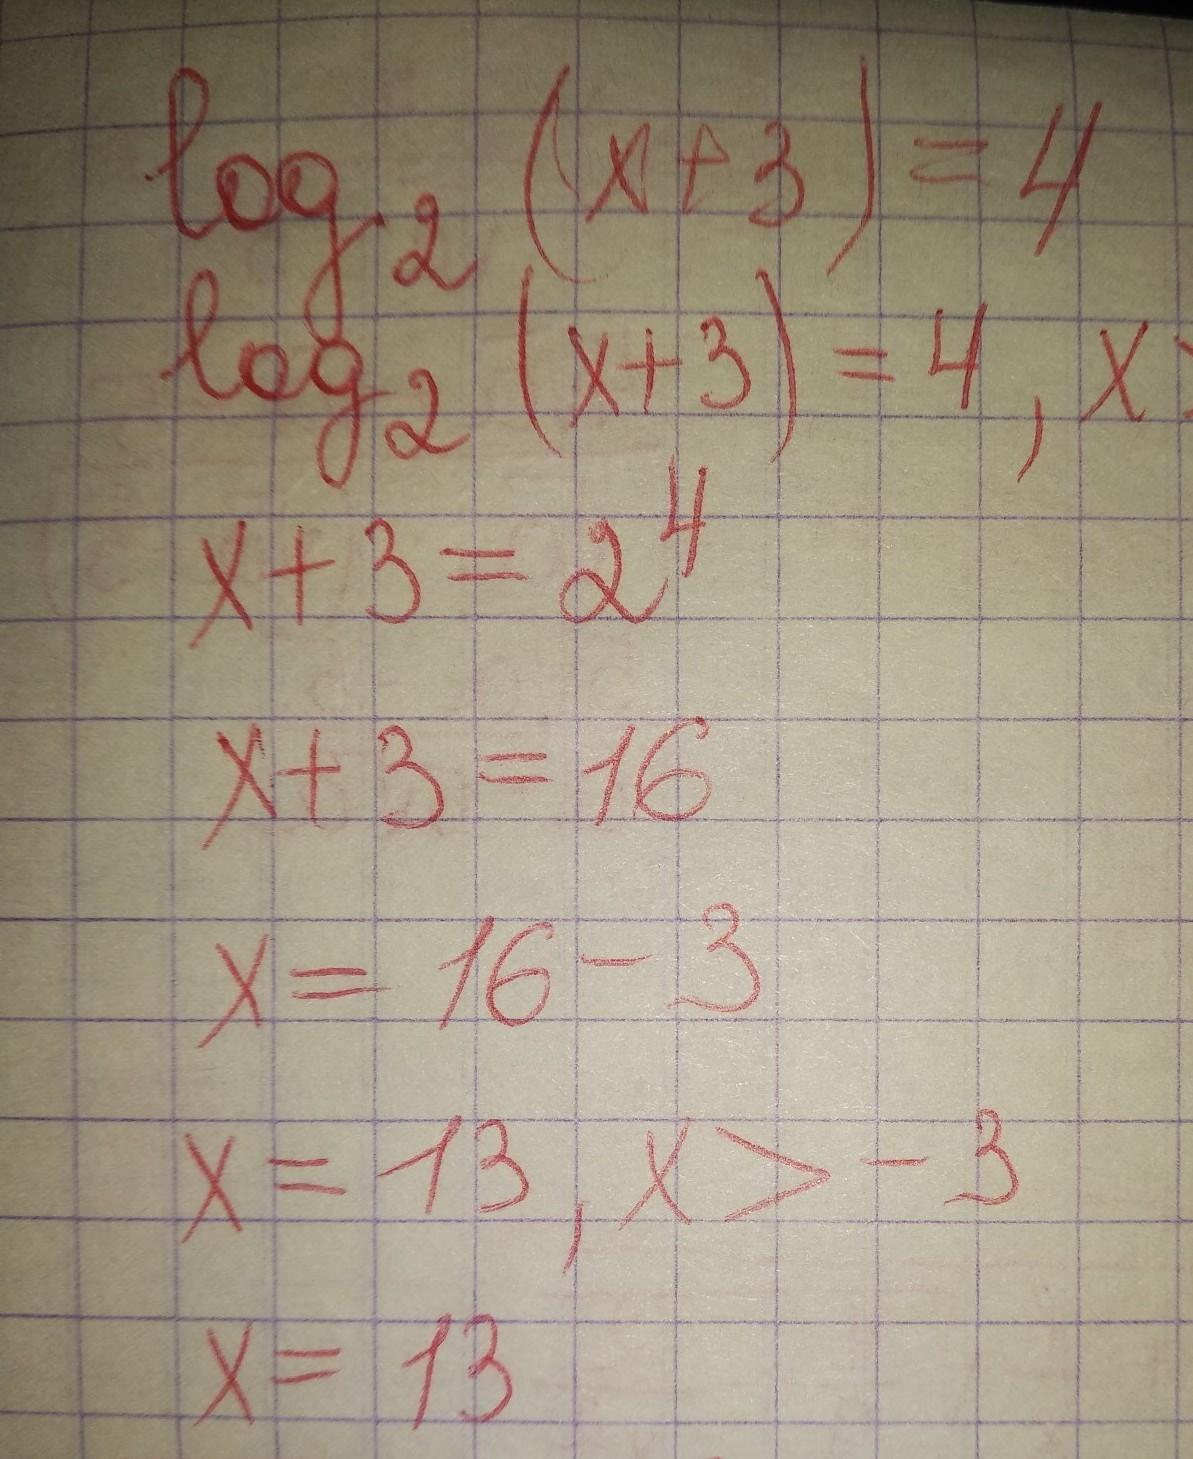 log₂ (x+3) = 4
log₂ (x+3) = 4 , x >
x+3 = 2⁴
x+3 = 16
x = 16 - 3
x = 13 , x > - 3
x = 13